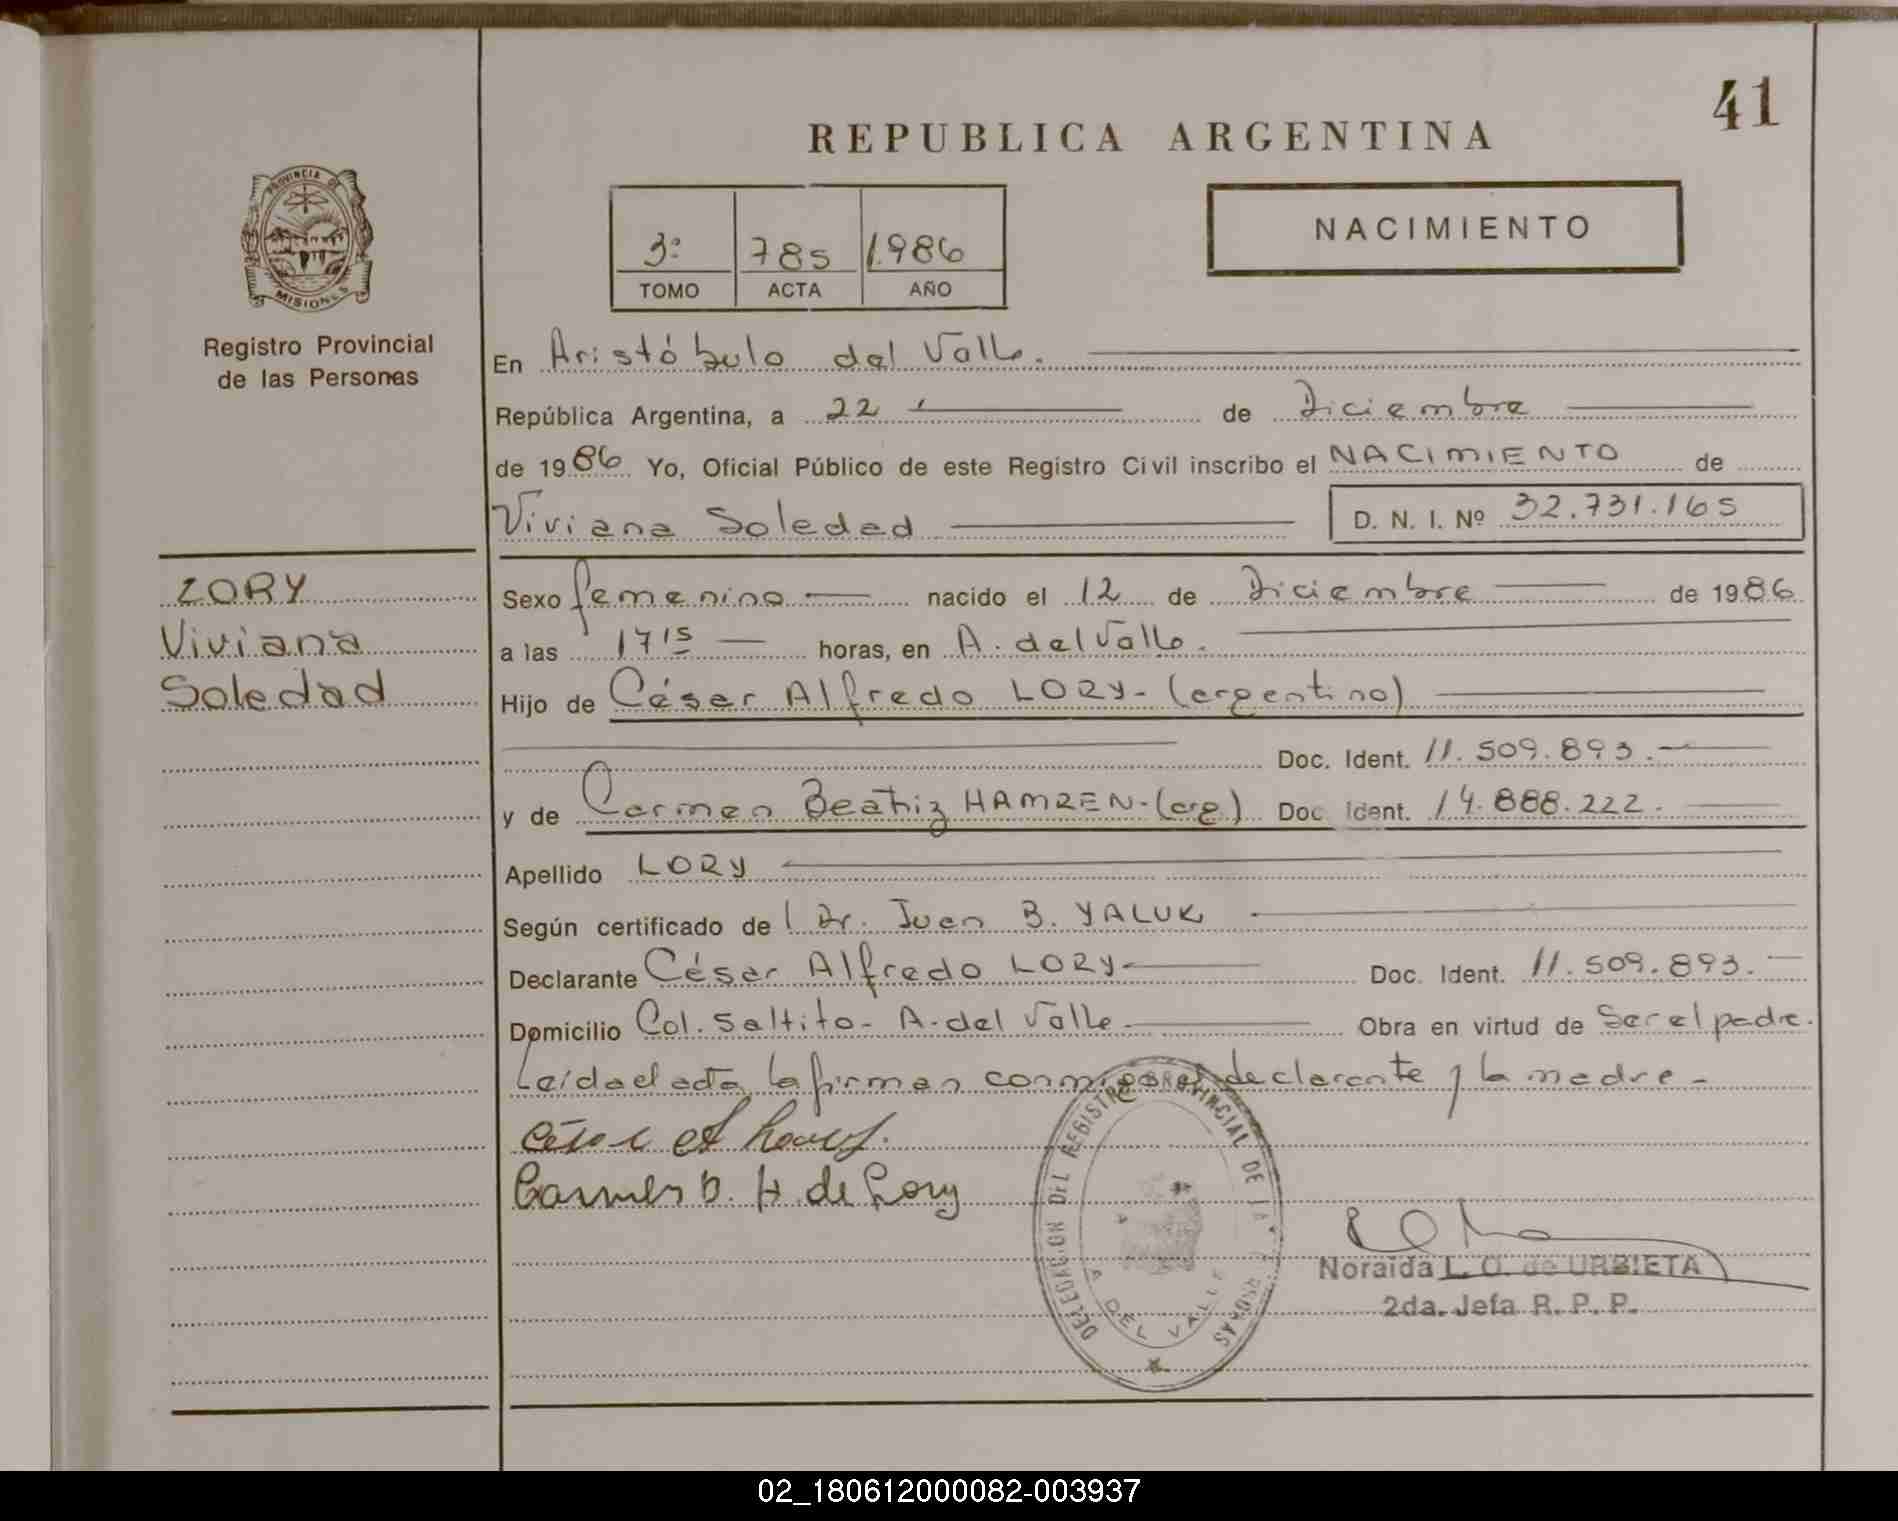 41
REPUBLICA ARGENTINA
PROVINCIA DE
MISIONES
Registro Provincial
de las Personas
3º 785 1.986
TOMO ACTA AÑO
NACIMIENTO
En Aristóbulo del Valle.
República Argentina, a 22 de Diciembre
de 1986 Yo, Oficial Público de este Registro Civil inscribo el NACIMIENTO de
Viviana Soledad D. N. I. Nº 32.731.165
LORY
Viviana
Soledad
Sexo femenino nacido el 12 de Diciembre de 1986
a las 17 15 horas, en A. del Valle.
Hijo de César Alfredo LORY- (argentino)
Doc. Ident. 11.509.893.
y de Carmen Beatriz HAMZEN-(arg.) Doc. Ident. 14.888.222.
Apellido LORY
Según certificado de l Dr. Juan B. YALUK
Declarante César Alfredo LORY Doc. Ident. 11.509.893.
Domicilio Col. Saltito- A. del Valle Obra en virtud de Ser el padre.
Leída el acta, la firman conmigo el declarante y la madre-
César A
Carmen B. H. de Lory
DELEGACION DEL REGISTRO PROVINCIAL DE LAS PERSONAS
A. DEL VALLE
Noraida L. O. de URBIETA
2da. Jefa R. P. P.
02_180612000082-003937